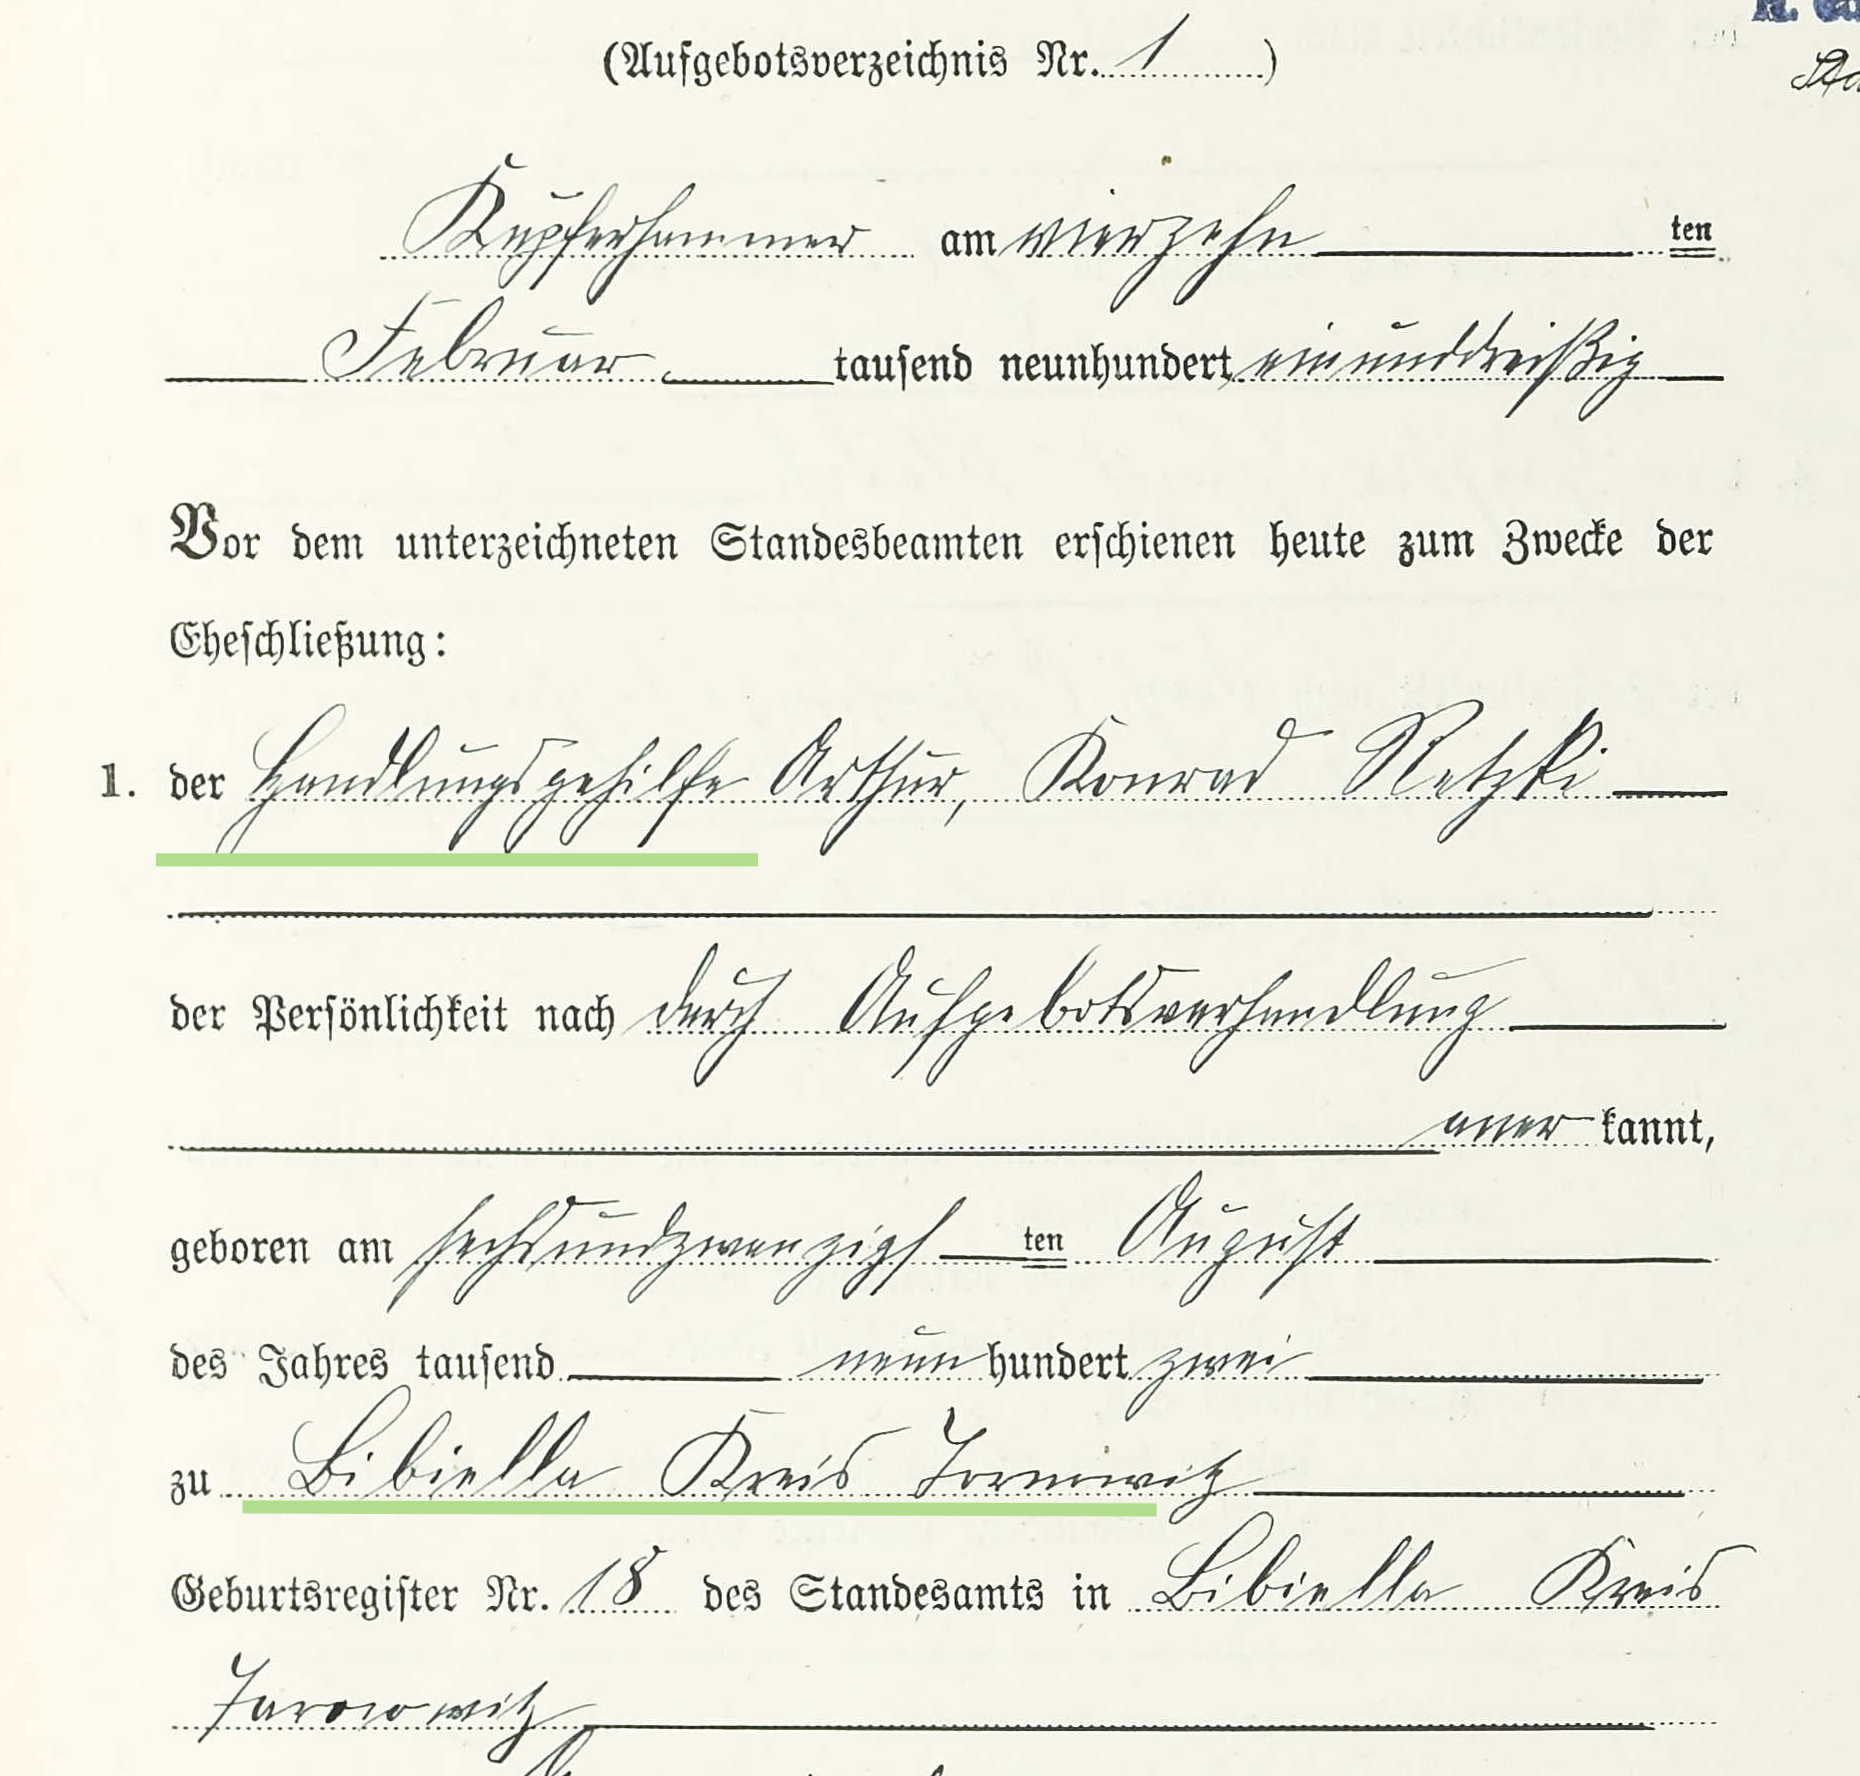 (Aufgebotsverzeichnis Nr. 1 )
Kupferhammer am vierzehn ten
Februar tausend neunhundert einunddreißig
Vor dem unterzeichneten Standesbeamten erschienen heute zum Zwecke der
Eheschließung:
1. der Handlungsgehilfe Arthur, Konrad Netzki
der Persönlichkeit nach durch Aufgebotsverhandlung
aner kannt,
geboren am sechsundzwanzigs ten August
des Jahres tausend neun hundert zwei
zu Bibiella Kreis Tarnowitz
Geburtsregister Nr. 18 des Standesamts in Bibiella Kreis
Tarnowitz